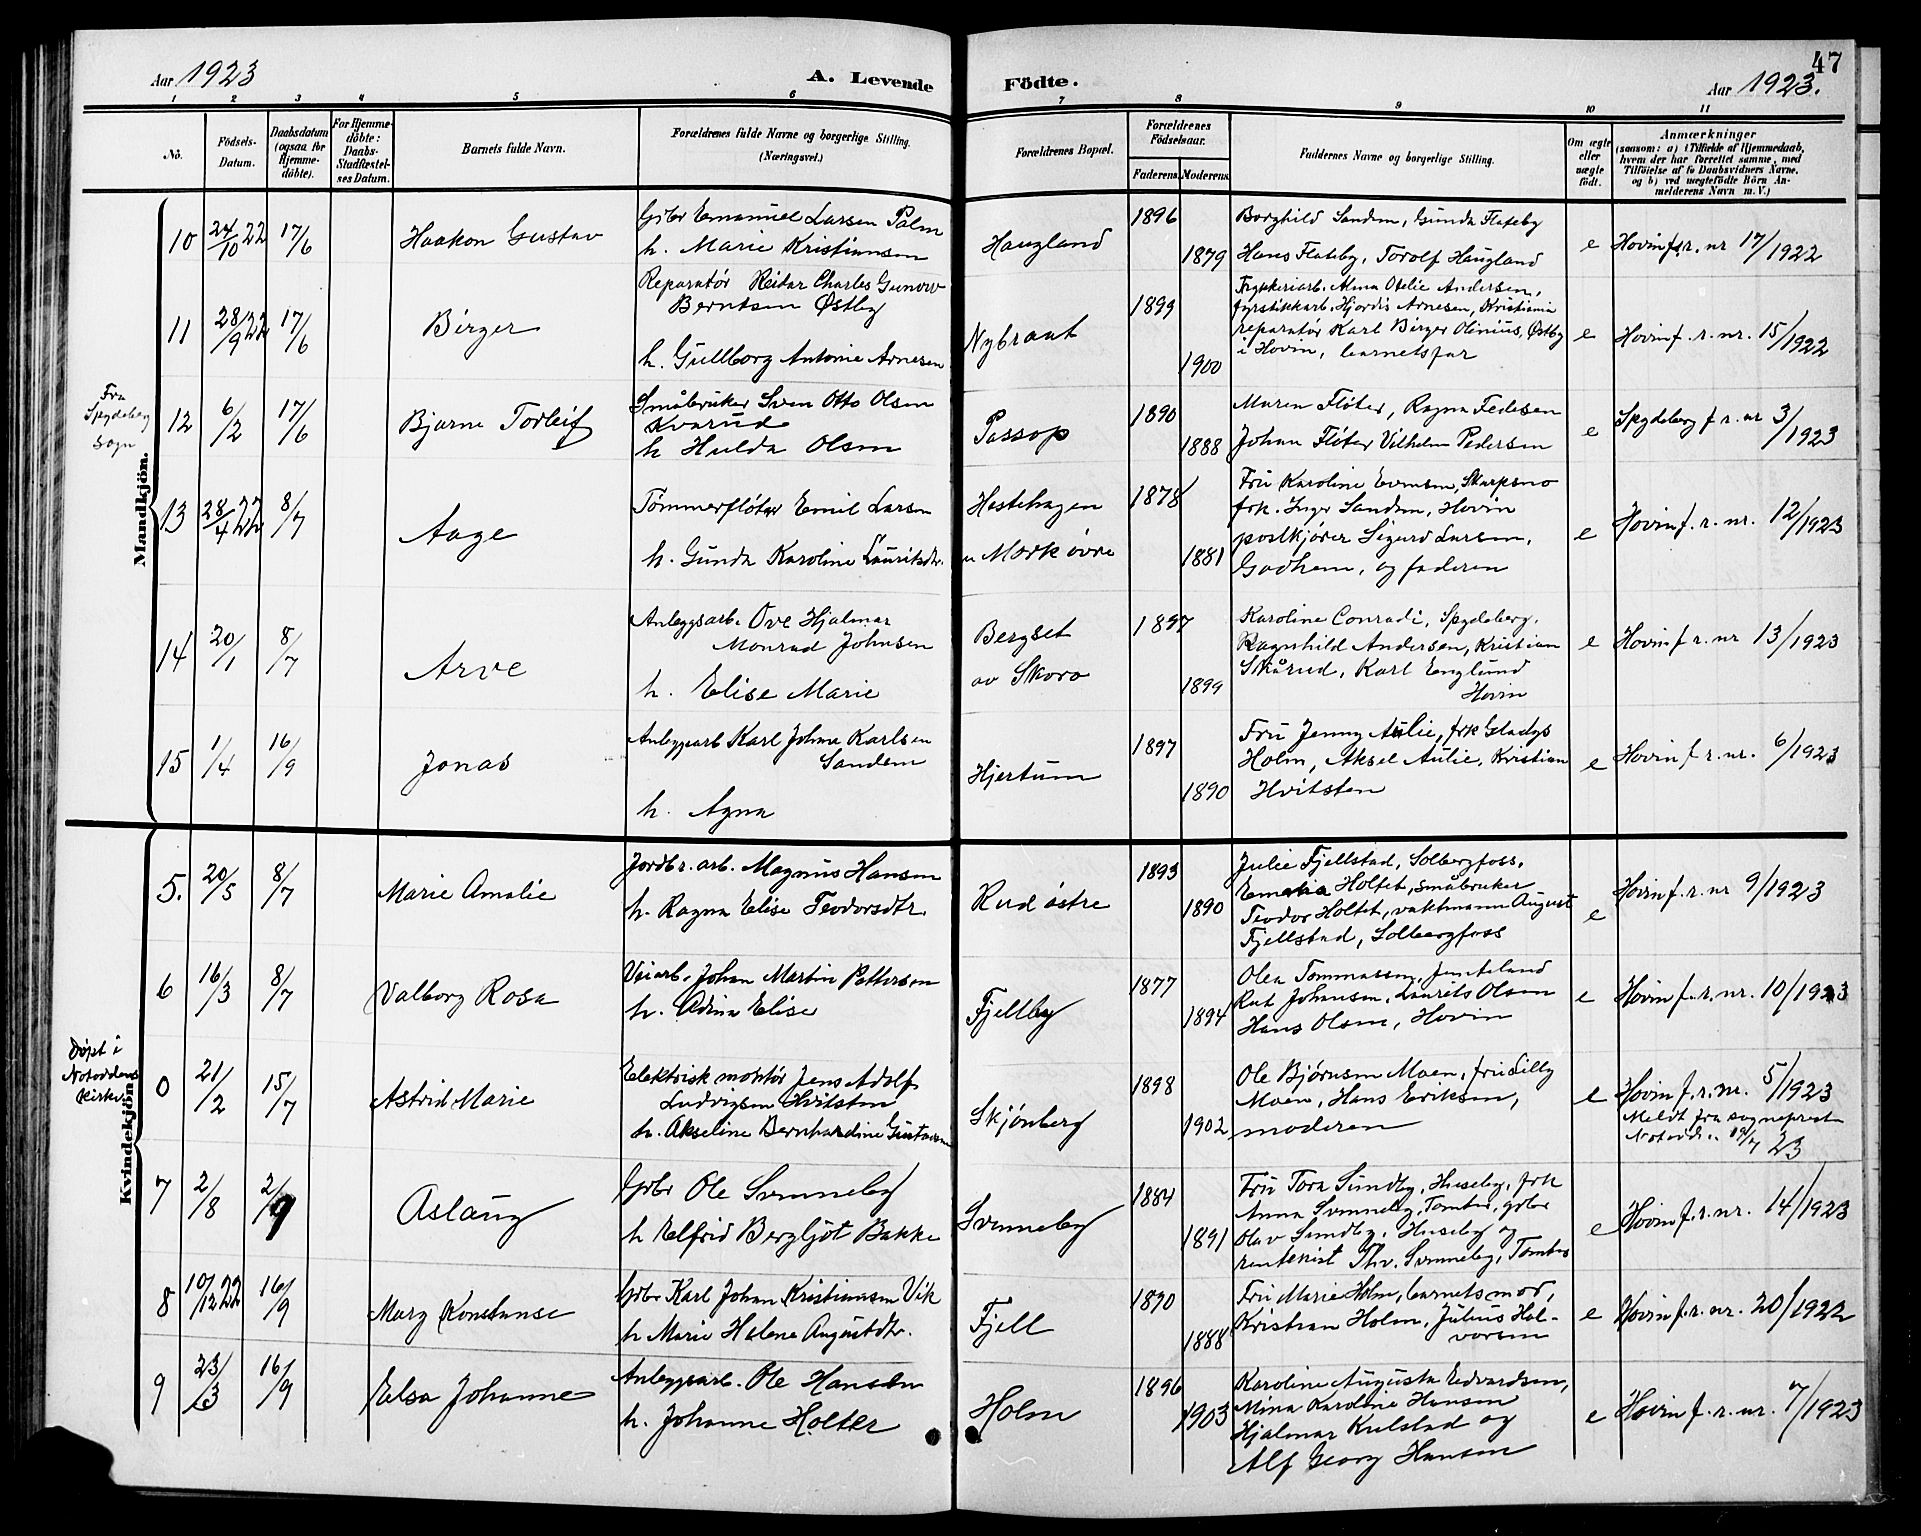 47
Aar 1923
A. Levende
Födte.
Aar 1923.
1 2 3 4 5 6 7 8 9 10 11
Nö.
Födsels-
Datum.
Daabsdatum
(ogsaa for
Hjemme-
döbte).
For Hjemme-
döbte:
Daabs-
Stadfæstel-
ses Datum.
Barnets fulde Navn.
Forældrenes fulde Navne og borgerlige Stilling.
(Næringsvei.)
Forældrenes Bopæl.
Forældrenes
Födselsaar.
Faderens. Moderens.
Faddernes Navne og borgerlige Stilling.
Om ægte
eller
uægte
födt.
Anmærkninger
(saasom: a) i Tilfælde af Hjemmedaab,
hvem der har forrettet samme, med
Tilföielse af to Daabsvidners Navne,
og b) ved uægtefödte Börn An-
melderens Navn m. V.)
Mandkjön.
10 24/10 22 17/6 Haakon Gustav
Gbr Emanuel Larsen Palm
h. Marie Kristiansen
Haugland
1896
1879
Borghild Sandem, Gunda Flateby
Hans Flateby, Torolf Haugland
e
Hovin f. r. nr 17/1922
11 28/9 22 17/6 Birger
Reparatør Reidar Charles Gunerv
Berntsen Østby
h. Gullborg Antonie Arnesen
Nybraat
1899
1900
Trykkeriarb. Anna Otelie Andersen,
fyrstikkarb. Hjordis Arnesen, Kristiania
reparatør Karl Birger Olenius, Østby
i Hovin, barnets far
e
Hovin f. r. nr. 15/1922
Fra
Spydeberg
sogn
12 6/2 17/6 Bjarne Torleif
Småbruker Sven Otto Olsen
Kvarud
h Hulda Olsen
Passop
1890
1888
Maren Fløter, Ragna Pedersen
Johan Fløter Vilhelm Pedersen
e
Spydeberg f r. nr 3/1923
13 28/4 22 8/7 Aage
Tømmerfløter Emil Larsen
h. Gunda Karoline Lauritsdtr.
Hestehagen
u Mørk øvre
1878
1881
Fru Karoline Evensen, Skarpsno
frk. Inger Sandem, Hovin
postkjører Sigurd Larsen,
Godhem, og faderen
e
Hovin f. r. nr. 12/1923
14 20/1 8/7 Arve
Anleggsarb. Ove Hjalmar
Monrad Johnsen
h. Elise Marie
Bergset
av Skoro
1897
1899
Karoline Conradi, Spydeberg,
Ragnhild Andersen, Kristian
Skårud, Karl Englund
Hovin
e
Hovin f. r. nr 13/1923
15 1/4 16/9 Jonas
Anleggsarb Karl Johan Karlsen
Sandem
h. Agna
Hjertum
1897
1890
Fru Jenny Aulie, frk Gladys
Holm, Aksel Aulie, Kristian
Hvitsten
e
Hovin f. r. nr. 6/1923
Kvindekjön.
5. 20/5 8/7 Marie Amalie
Jordbr. arb. Magnus Hansen
h. Ragna Elise Teodorsdtr.
Rud østre
1893
1890
Julie Fjellstad, Solbergfoss,
Holtet, småbruker
Teodor Holtet, vaktmann August
Fjellstad, Solbergfoss
e
Hovin f. r. nr 9/1923
6 16/3 8/7 Valborg Rosa
Veiarb. Johan Martin Pettersen
h. Adina Elise
Fjellby
1877
1894
Olea Tommassen,
Rut Johansen, Laurits Olsen
Hans Olsen, Hovin
e
Hovin f. r. nr. 10/1923
Døpt i
Notoddens
kirke
0 21/2 15/7 Astrid Marie
Elektrisk montør Jens Adolf
Ludvigsen Hvitsten
h. Akseline Bernhardine Gustavsen
Skjønberg
1898
1902
Ole Bjørnsen Moen, fru Lilly
Moen, Hans Eriksen,
moderen
e
Hovin f. r. nr. 5/1923
Meldt fra sogneprest
Notodd. 19/7 23
7 2/8 2/9 Aslaug
Gbr Ole Svenneby
h Elfrid Bergljot Bakke
Svenneby
1884
1891
Fru Tora Sundby, Huseby, frk
Anna Svenneby, Tomter, gbr
Olav Sundby, Huseby og
rentenist Thv. Svenneby, Tomter
e
Hovin f. r. nr. 14/1923
8 10/12 22 16/9 Mary Konstanse
Gbr Karl Johan Kristiansen Vik
h Marie Helene Augustdtr.
Fjell
1890
1888
Fru Marie Holm, barnets mor,
Kristian Holm, Julius Hal-
vorsen
e
Hovin f. r. nr. 20/1922
9 23/3 16/9 Elsa Johanne
Anleggsarb. Ole Hansen
h. Johanne Holter
Holm
1896
1903
Karoline Augusta Edvardsen,
Mina Karoline Hansen
Hjalmar Kulstad og
Alf Georg Hansen
e
Hovin f. r. nr. 7/1923